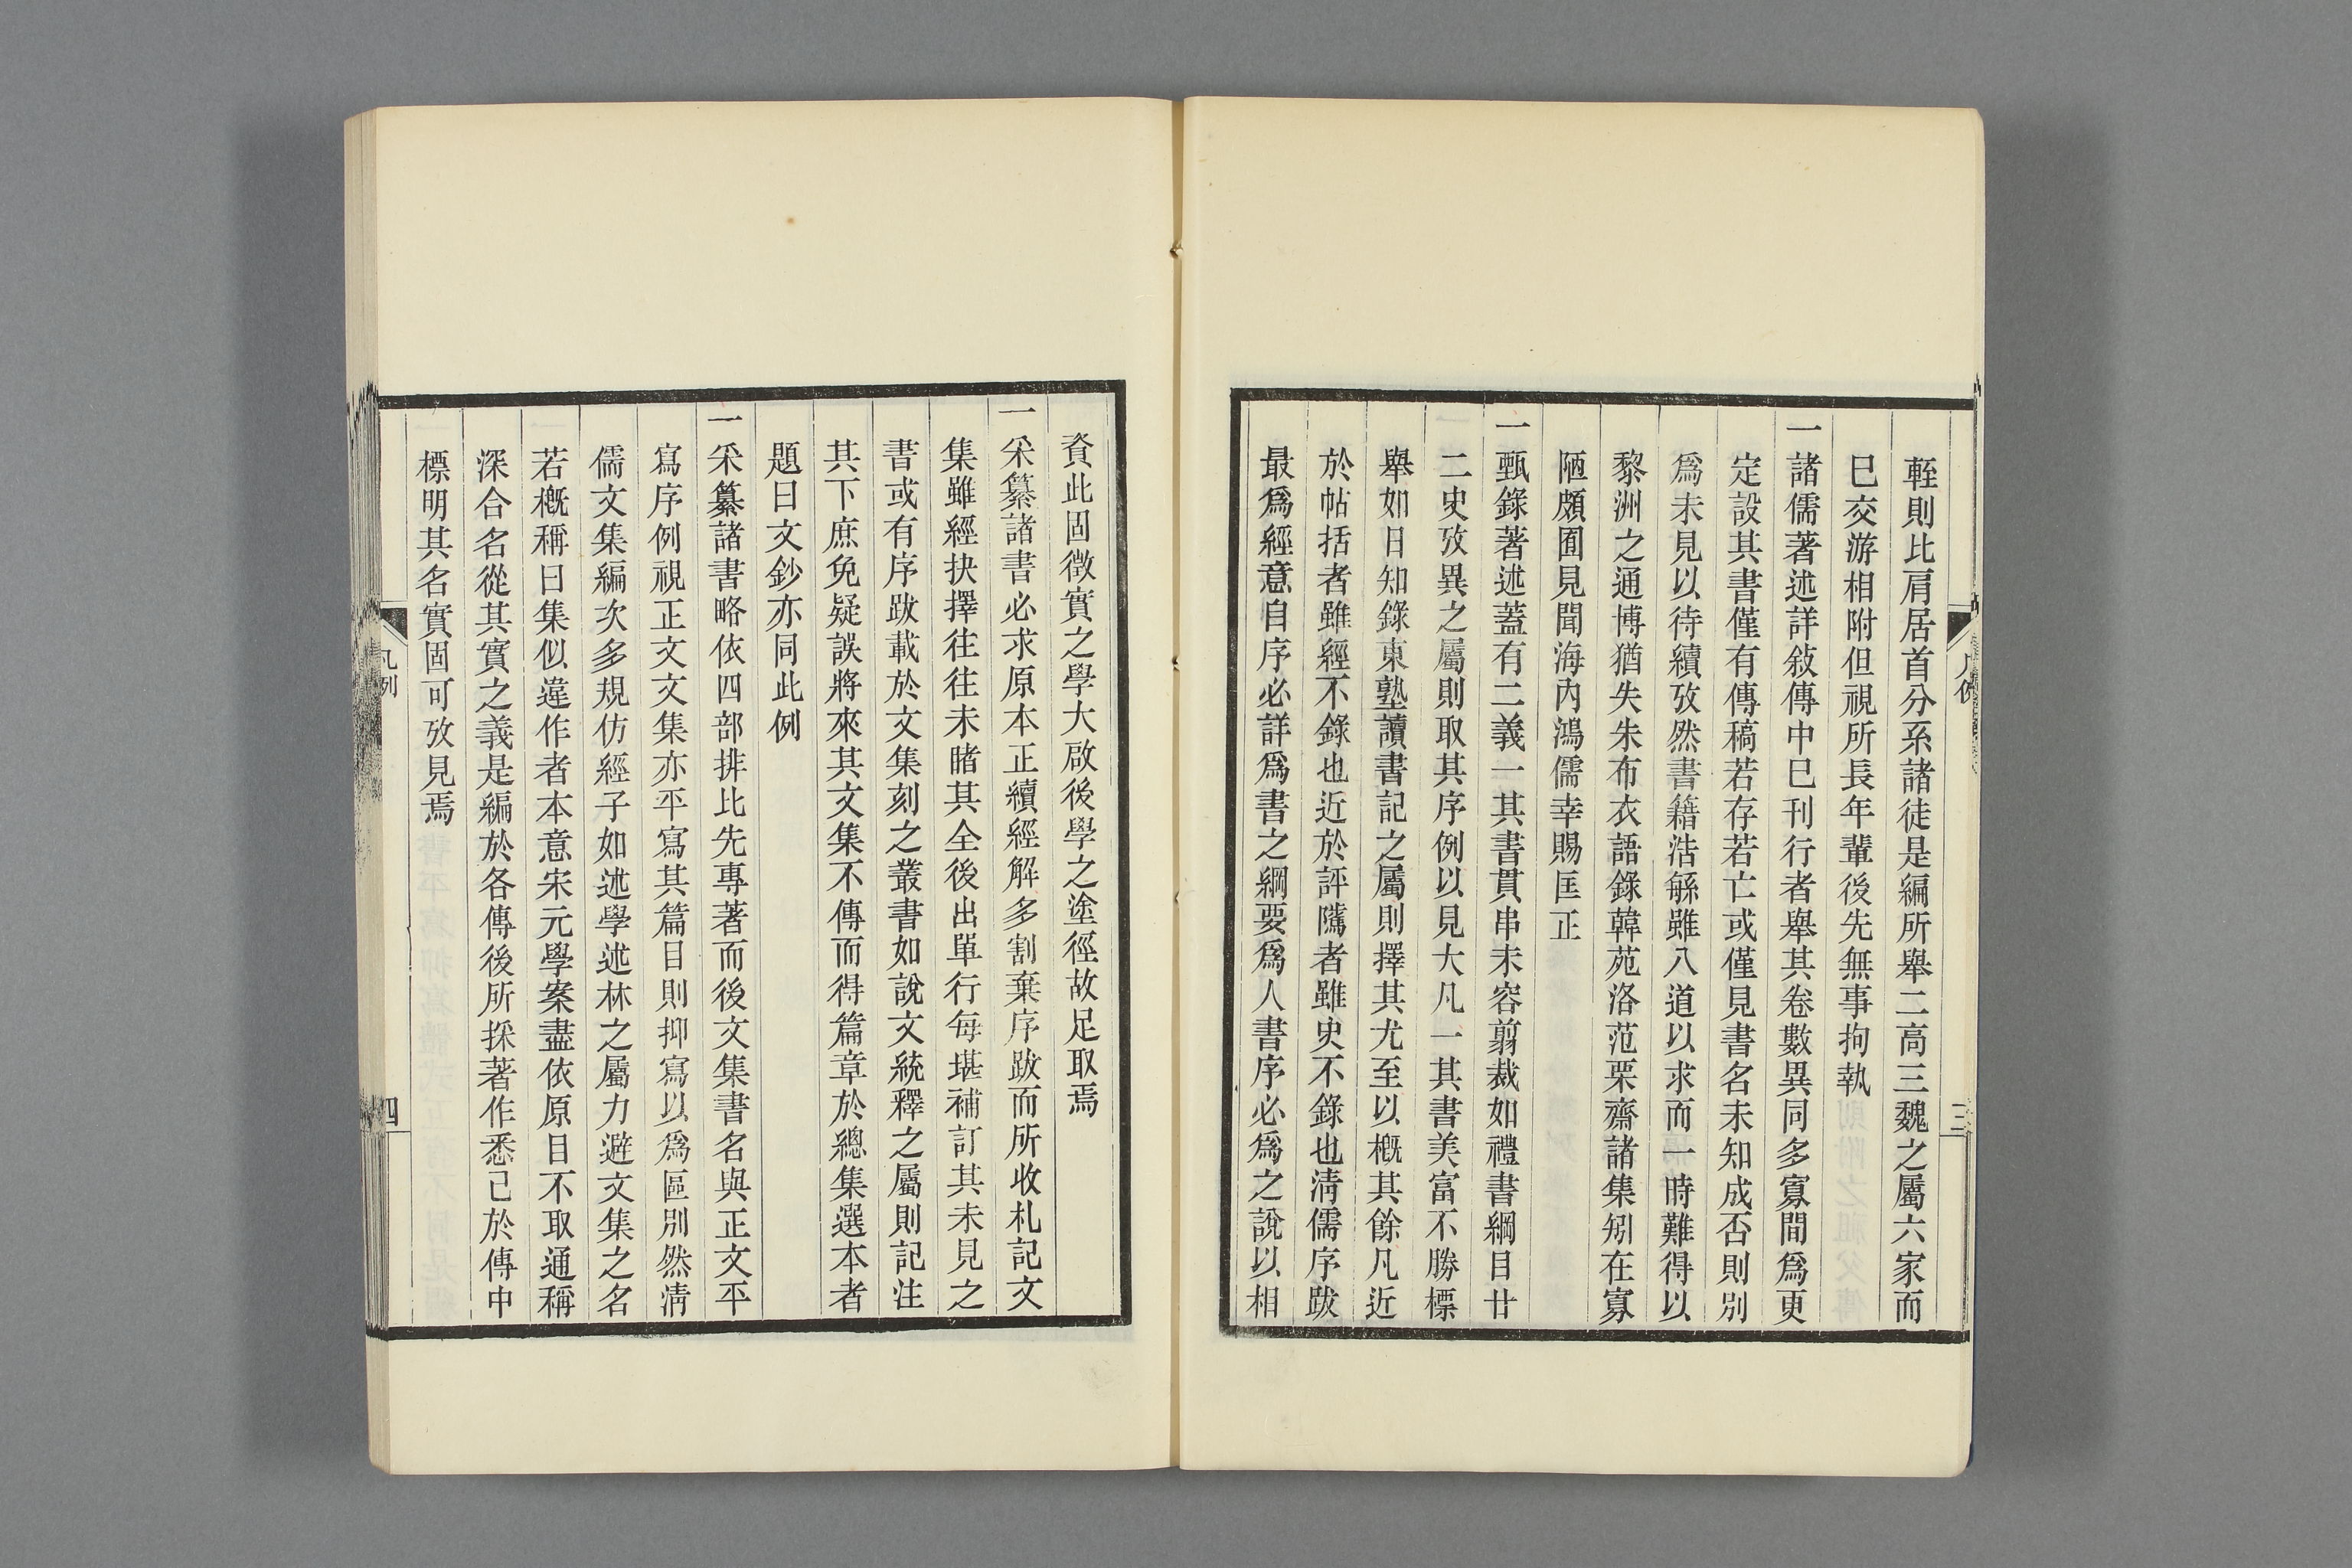 輊則比肩居首分系諸徒是編所舉二高三魏之屬六家而
已交游相附但視所長年輩後先無事拘執
一諸儒著述詳敍傳中已刊行者舉其卷數異同多寡間爲更
定設其書僅有傳稿若存若亡或僅見書名未知成否則別
爲未見以待續攷然書籍浩緐雖八道以求而一時難得以
黎洲之通博猶失朱布衣語錄韓苑洛范栗齋諸集矧在寡
陋頗囿見聞海內鴻儒幸賜匡正
一甄錄著述蓋有二義一其書貫串未容翦裁如禮書綱目廿
二史攷異之屬則取其序例以見大凡一其書美富不勝標
舉如日知錄東塾讀書記之屬則擇其尤至以槪其餘凡近
於帖括者雖經不錄也近於評隲者雖史不錄也淸儒序跋
最爲經意自序必詳爲書之綱要爲人書序必爲之說以相
三
資此固徵實之學大啟後學之塗徑故足取焉
一采纂諸書必求原本正續經解多割棄序跋而所收札記文
集雖經抉擇往往未睹其全後出單行每堪補訂其未見之
書或有序跋載於文集刻之叢書如說文統釋之屬則記注
其下庶免疑誤將來其文集不傳而得篇章於總集選本者
題曰文鈔亦同此例
一采纂諸書略依四部排比先專著而後文集書名與正文平
寫序例視正文文集亦平寫其篇目則抑寫以爲區別然淸
儒文集編次多規仿經子如述學述林之屬力避文集之名
若槪稱曰集似違作者本意宋元學案盡依原目不取通稱
深合名從其實之義是編於各傳後所採著作悉已於傳中
標明其名實固可攷見焉
凡例
四